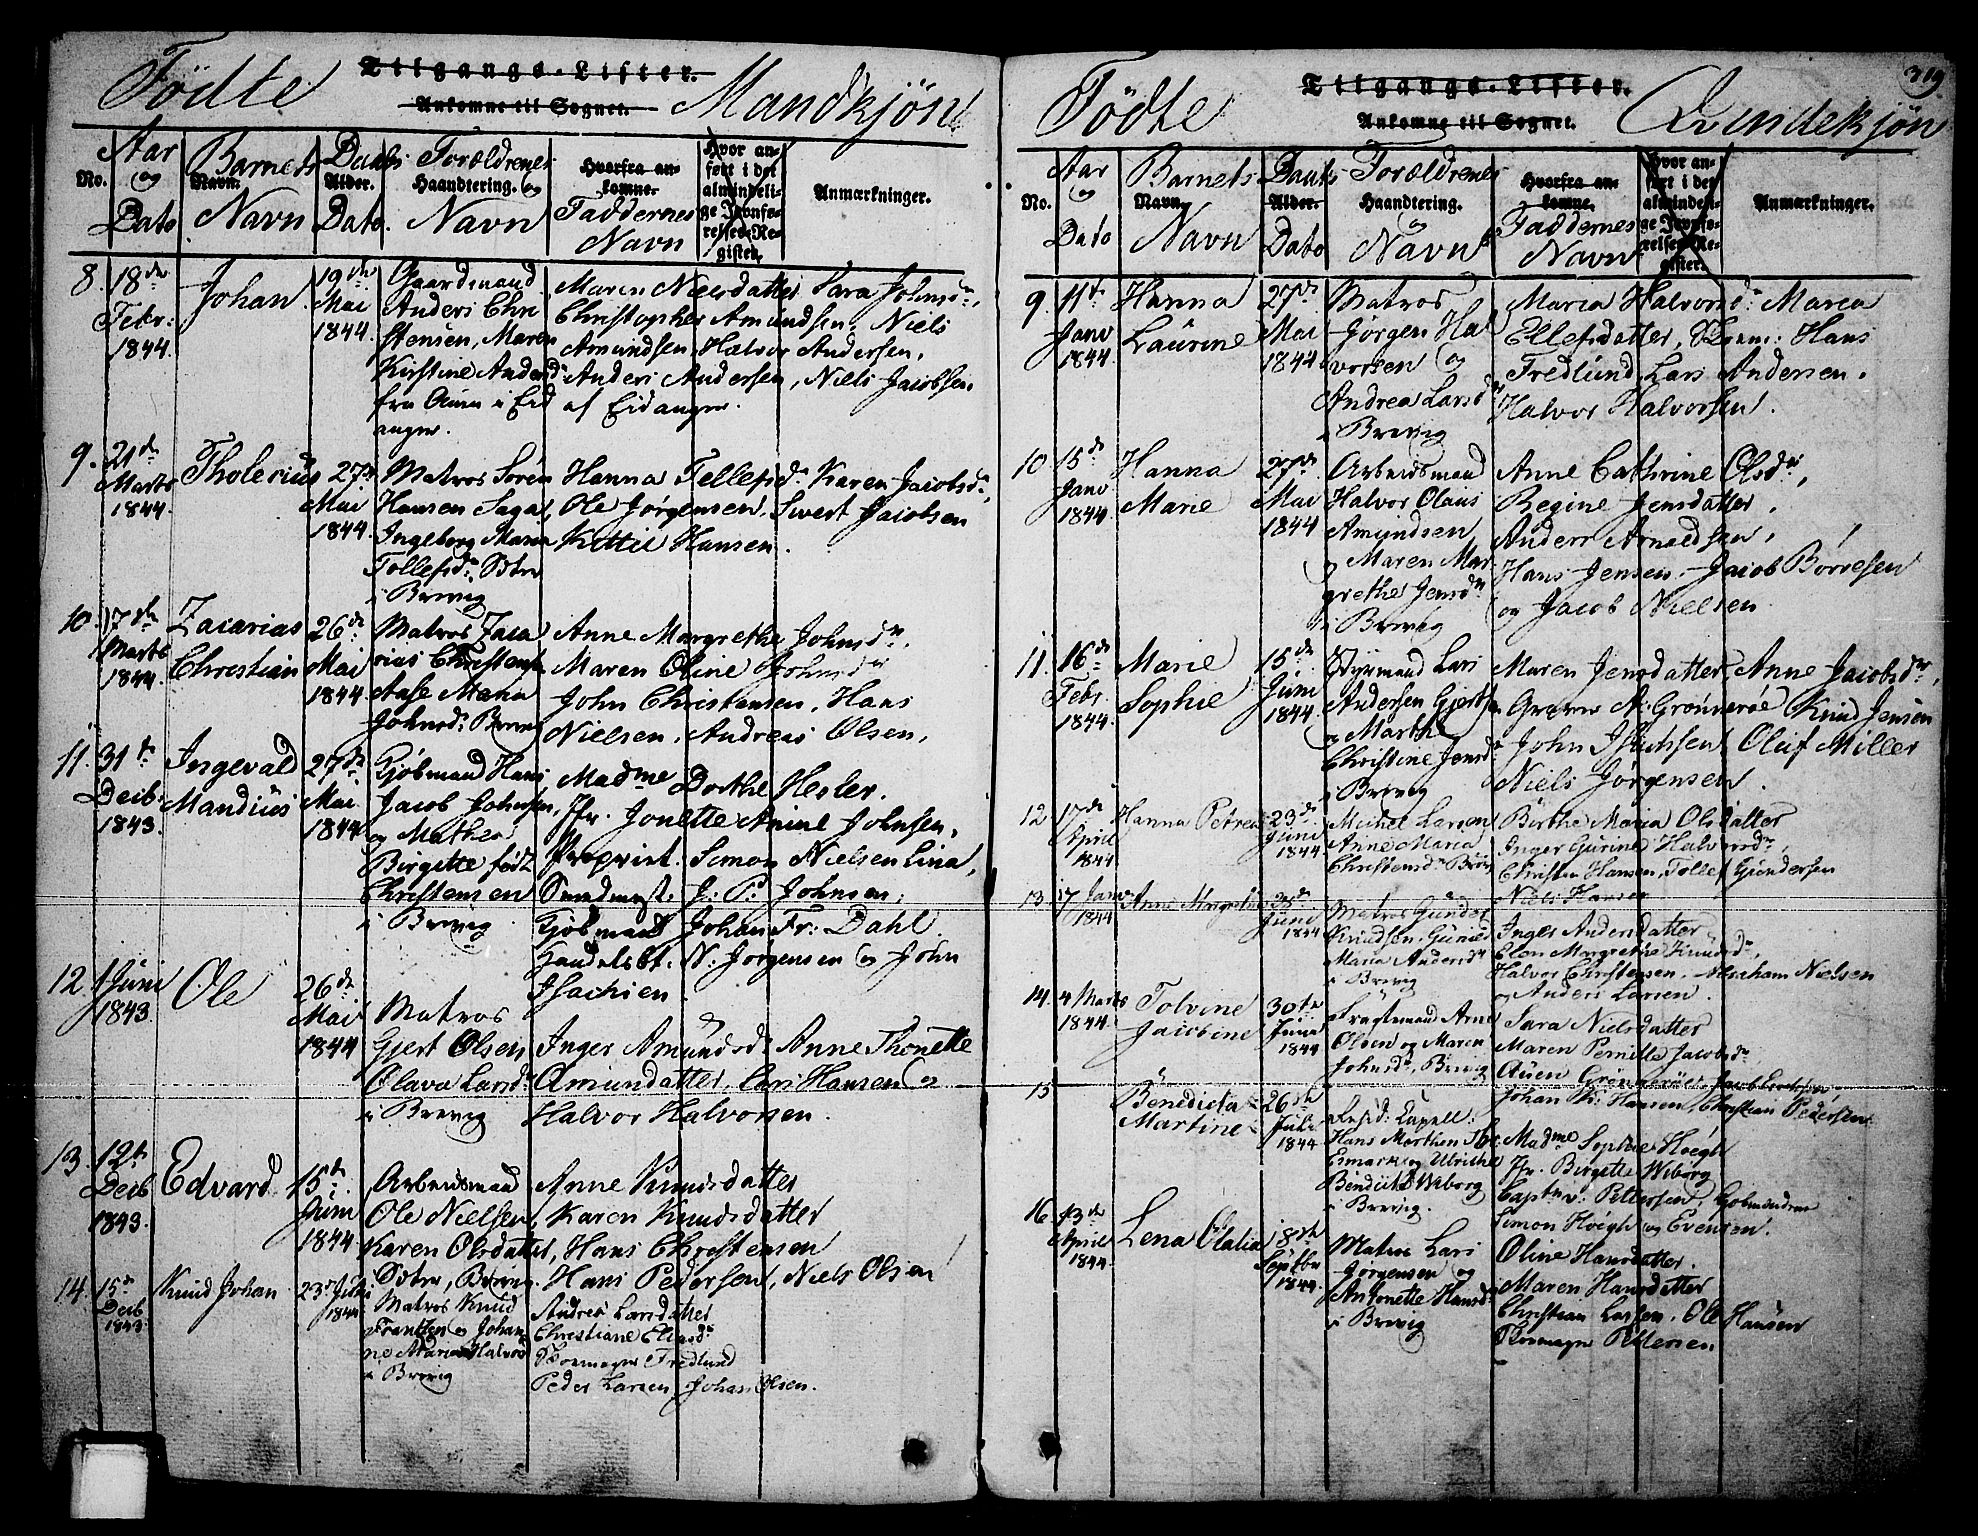 Födte Tilgangs-Lister. Mandkjön
Ankomne til Sognet.
No. Aar og Dato Barnets Navn. Navn Daabs Alder. Dato Forældrenes Haandtering. og Navn Hvorfra ankomne. Faddernes Navn Hvor anført i det almindelige Jevnførelses-Register. Anmærkninger.
8. 18de Febr: 1844. Johan. 19de Mai 1844.
Gaardmand
Anders Chri
stensen, Maren
Kirstine Andersd
fra Øien i Eid
anger.
Maren Nielsdatter, Sara Johnsdr,
Christopher Amundsen, Niels
Amundsen, Halvor Andersen,
Anders Andersen, Niels Jacobsen,
af Eidanger.
9. 21de Marts 1844. Tholerius 27de Mai 1844.
Matros Sören
Hansen Saga,
Ingeborg Maria
Tollefsdr
i Brevig
Hanna Tellefsdr Karen Jacobsdr,
Ole Jørgensen, Swert Jacobsen
Kittil Hansen.
10. 17de Marts 1844. Zacarias Christian 26de Mai 1844
Matros Zaca
rias Christens
Aase Maria
Johnsdr Brevig
Anne Margrethe Johnsdr,
Maren Oline Johnsdr
John Christensen, Hans
Nielsen, Andreas Olsen,
11. 31te Decb. 1843. Ingevald Mandius 27de Mai 1844
Kjöbmand Hans
Jacob Johnsen,
og Mathea
Birgitte født
Christensen
i Brevig
Madme Dorthe Hesler.
Jfr. Jonette Anine Johnsen,
Propriet. Simon Nielsen Lina,
J: P: Johnsen,
Kjöbmand Johan Fr: Dahl
Handelsbt. N. Jörgensen og John
Isachsen
12. 1 Juni 1843. Ole 26de Mai 1844
Matros
Gjert Olsen
Olava Larsdr
i Brevig
Inger Amundsd. Anne Thonette
Amundatter, Lars Hansen og
Halvor Halvorsen.
13. 12te Decb 1843. Edvard 15de Juni 1844
Arbeidsmand
Ole Nielsen,
Karen Olsdatter,
Brevig.
Anne Knudsdatter
Karen Knudsdatter
Hans Christensen
Hans Pedersen, Niels Olsen
14. 15de Decb 1843. Knud Johan 23de 1844
Matros Knud
Frantzen og Johan
ne Maria Halvors
i Brevig
Andrea Larsdatter
Christiane Eliasdr
Skomager Fredlund
Peder Larsen, Johan Olsen.
319.
Födte Tilgangs-Lister. Qvindekjön
Ankomne til Sognet.
No. Aar og Dato Barnets Navn. Navn Daabs Alder. Dato Forældrenes Haandtering. og Navn Hvorfra ankomne. Faddernes Navn Hvor anført i det almindelige Jevnførelses-Register. Anmærkninger.
9. 11te Janv 1844. Hanna Laurine 27de Mai 1844
Matros
Jörgen Hal
vorsen og
Andrea Larsdr
i Brevig
Maria Halvorsdr Maria
Ellefsdatter, Skoem: Hans
Fredlund, Lars Andersen,
Halvor Halvorsen.
10 15de Janv 1844 Hanna Marie 27de Mai 1844
Arbeidsmand
Halvor Olaus
Amundsen
og Maren Mar
grethe Jensdr
i Brevig
Anne Cathrine Olsdr,
Regine Jensdatter,
Anders Arnedsen,
Hans Jensen, Jacob Börresen
og Jacob Nielsen
11. 16de Febr 1844. Marie Sophie 15de Juni 1844.
Styrmand Lars
Andersen Gjertsen
og Marthe
Christine Jensdr
i Brevig
Maren Jensdatter, Anne Jacobsdr,
Graver A: Grönneröe Knud Jensen
John Isachsen Oluf Miller
Niels Jörgensen.
12 17de April 1844 Hanna Petrea 23de Juni 1844
Michel Larsen
Anne Maria
Christensdr Brevig
Birthe Maria Olsdatter
Inger Gurine Halvorsdr,
Christen Hansen, Tollef Gundersen
Niels Hansen
13. 17 Janv 1844 Anne Margrethe Juni 1844
Matros Gunder
Knudsen, Guniel
Maria Andersdr
i Brevig
Inger Andersdatter
Elen Margrethe
Halvor Christensen, Abraham Nielsen
og Anders Larsen.
14. 4 Marts 1844. Tolvine Jacobine 30te Juni 1844
Fragtmand Arne
Olsen og Maren
Johnsdr, Brevig
Sara Nielsdatter
Maren Pernille Jacobsdr
Auen Grönneröe,
Johan Hansen, Christian Pedersen
15 Benedicta Martine 26de Juli 1844
Resid: Capell:
Hans Morthen Thr:
Esmark og Ulrikke
Bendicta Wiborg
i Brevig.
Madme Sophie Höegh
Jfr. Birgitte Wiborg
Captn v: Pettersen, Kjöbmændene
Simon Höegh og Evensen.
16. 13de April 1844. Lena Olalia 8de Septbr 1844
Matros Lars
Jörgensen og
Antonette Hansdr
i Brevig
Oline Hansdatter.
Maren Hansdatter
Christian Larsen, Ole Hansen
Skomager Pettersen